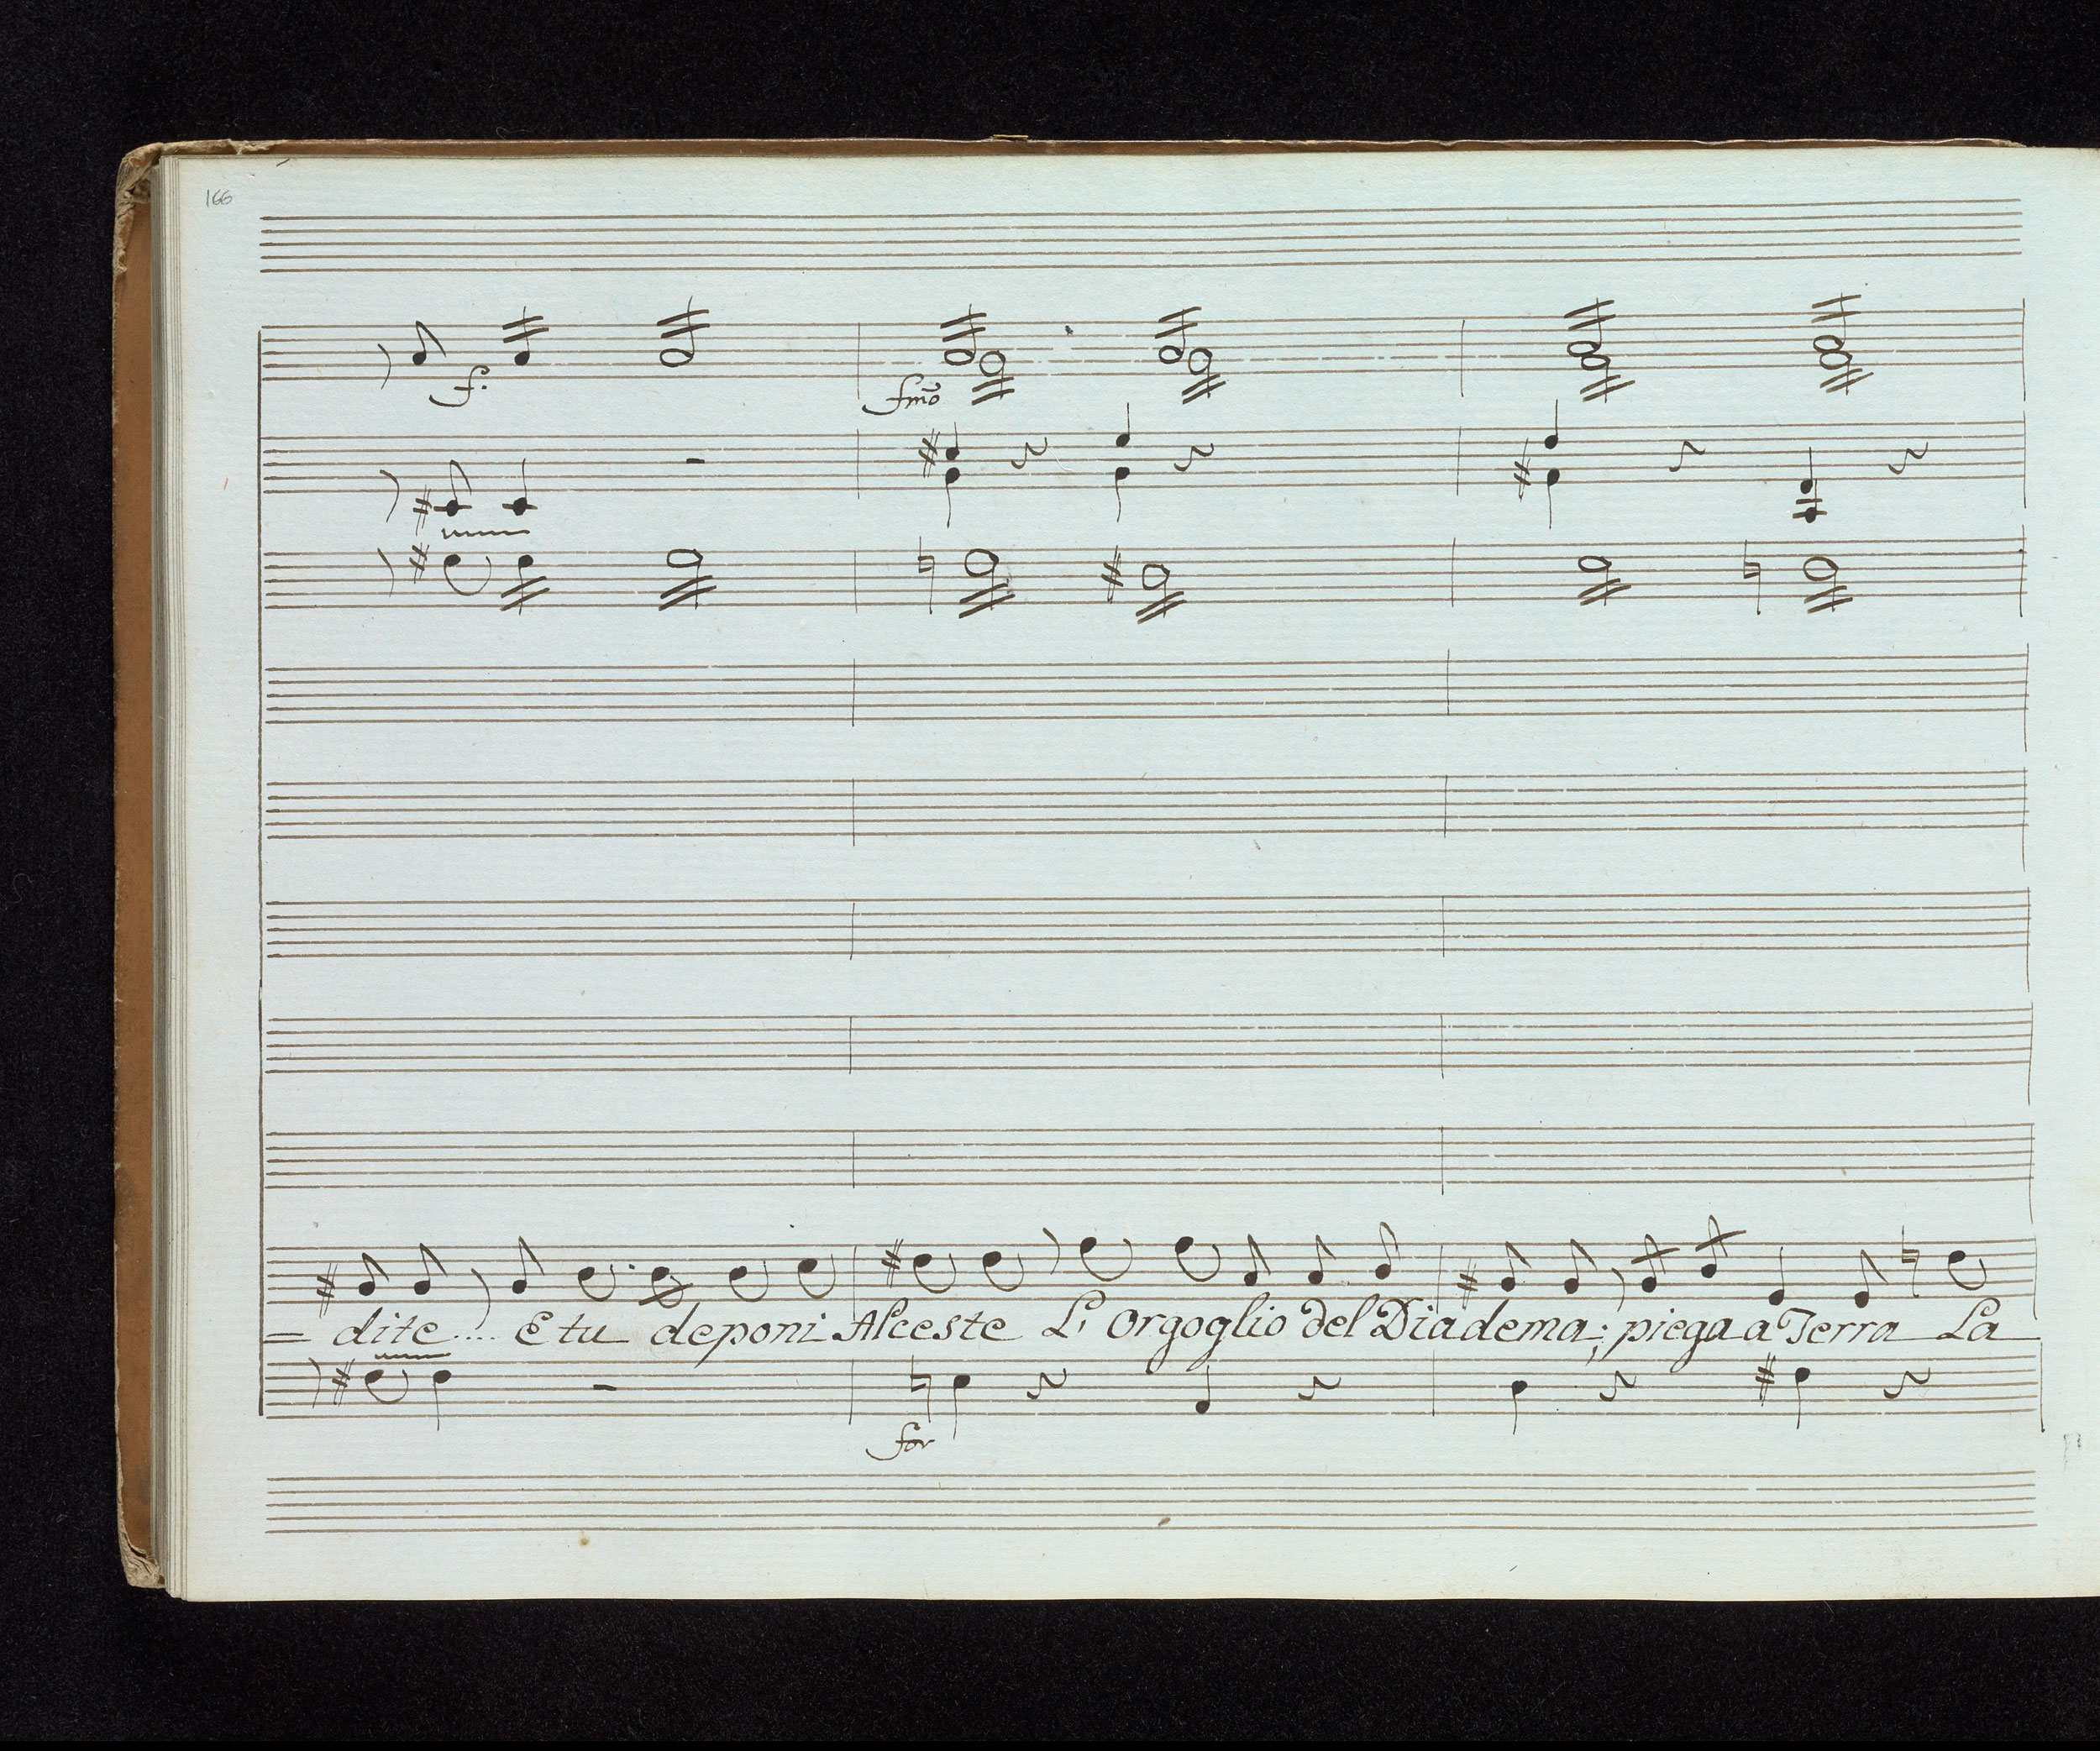 166
f.
fmo
dite.... E tu deponi Alceste L' Orgoglio del Diadema; piega a Terra La
for